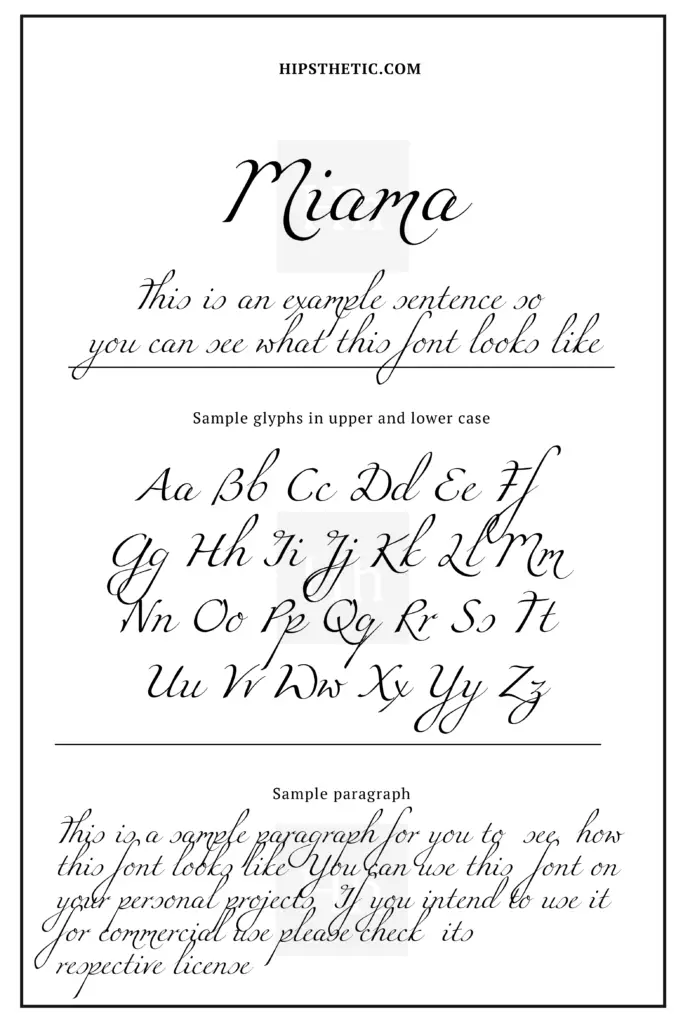 HIPSTHETIC.COM
Miama
This is an example sentence so
you can see what this font looks like
Sample glyphs in upper and lower case
Aa Bb Cc Dd Ee Ff
Gg Hh Ii Jj Kk Ll Mm
Nn Oo Pp Qq Rr Ss Tt
Uu Vv Ww Xx Yy Zz
Sample paragraph
This is a sample paragraph for you to see how
this font looks like You can use this font on
your personal projects If you intend to use it
for commercial use please check its
respective license